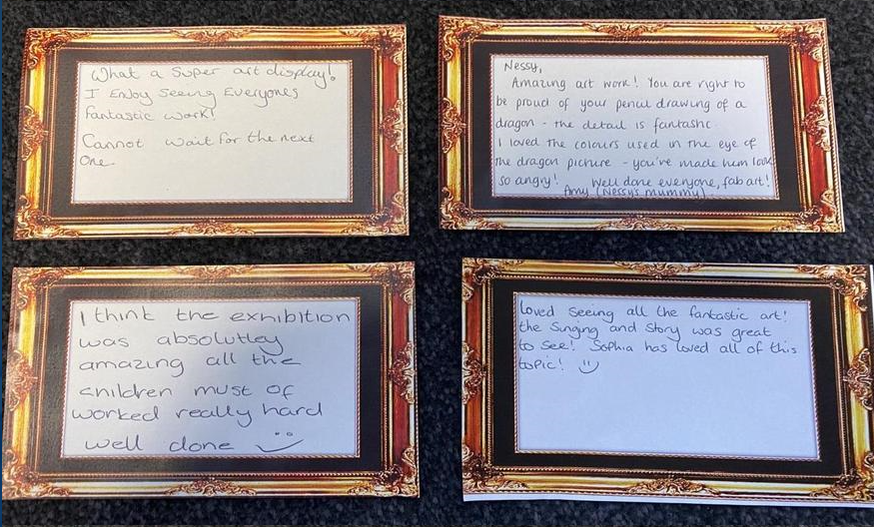 What a super art display!
I Enjoy seeing Everyones
fantastic work!
Cannot wait for the next
one.
Nessy,
Amazing art work! You are right to
be proud of your pencil drawing of a
dragon - the detail is fantastic
I loved the colours used in the eye of
the dragon picture - you've made him look
so angry! Well done everyone, fab art!
Amy (Nessy's mummy)
I think the exhibition
was absolutley
amazing all the
children must of
worked really hard
well done
Loved seeing all the fantastic art!
the singing and story was great
to see! Sophia has loved all of this
topic!